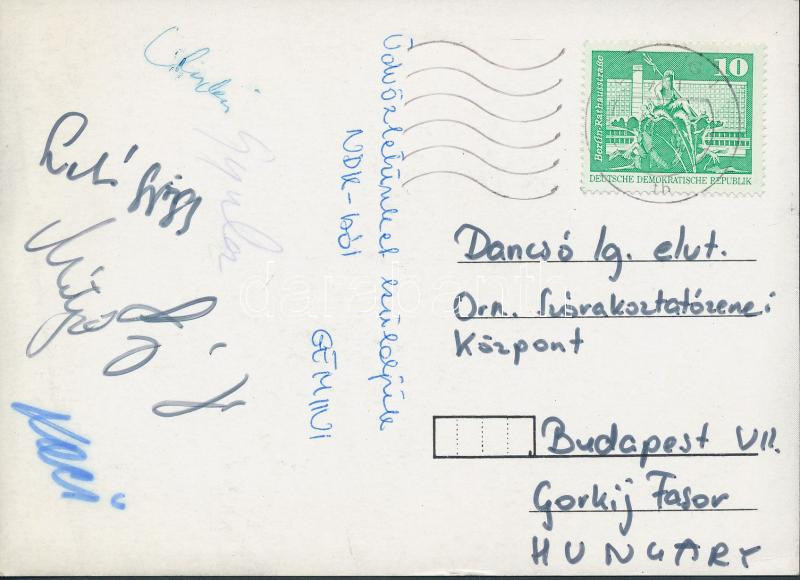 Üdvözletünket küldjük
NDK-ból
GEMINI
Gyula
10
Berlin-Rathausstraße
DEUTSCHE DEMOKRATISCHE REPUBLIK
Dancsó Ig. elvt.
Orn. Szórakoztatózenei
Központ
Budapest VII.
Gorkij Fasor
HUNGARY
darabanth